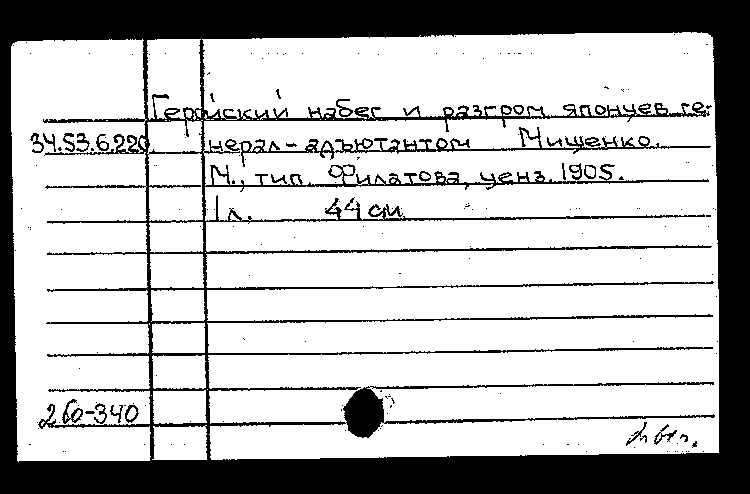 Геройский набег и разгром японцев ге-
34.53.6.220. нерал-адъютантом Мищенко.
М., тип. Филатова, ценз. 1905.
1 л. 44 см
2 60-340